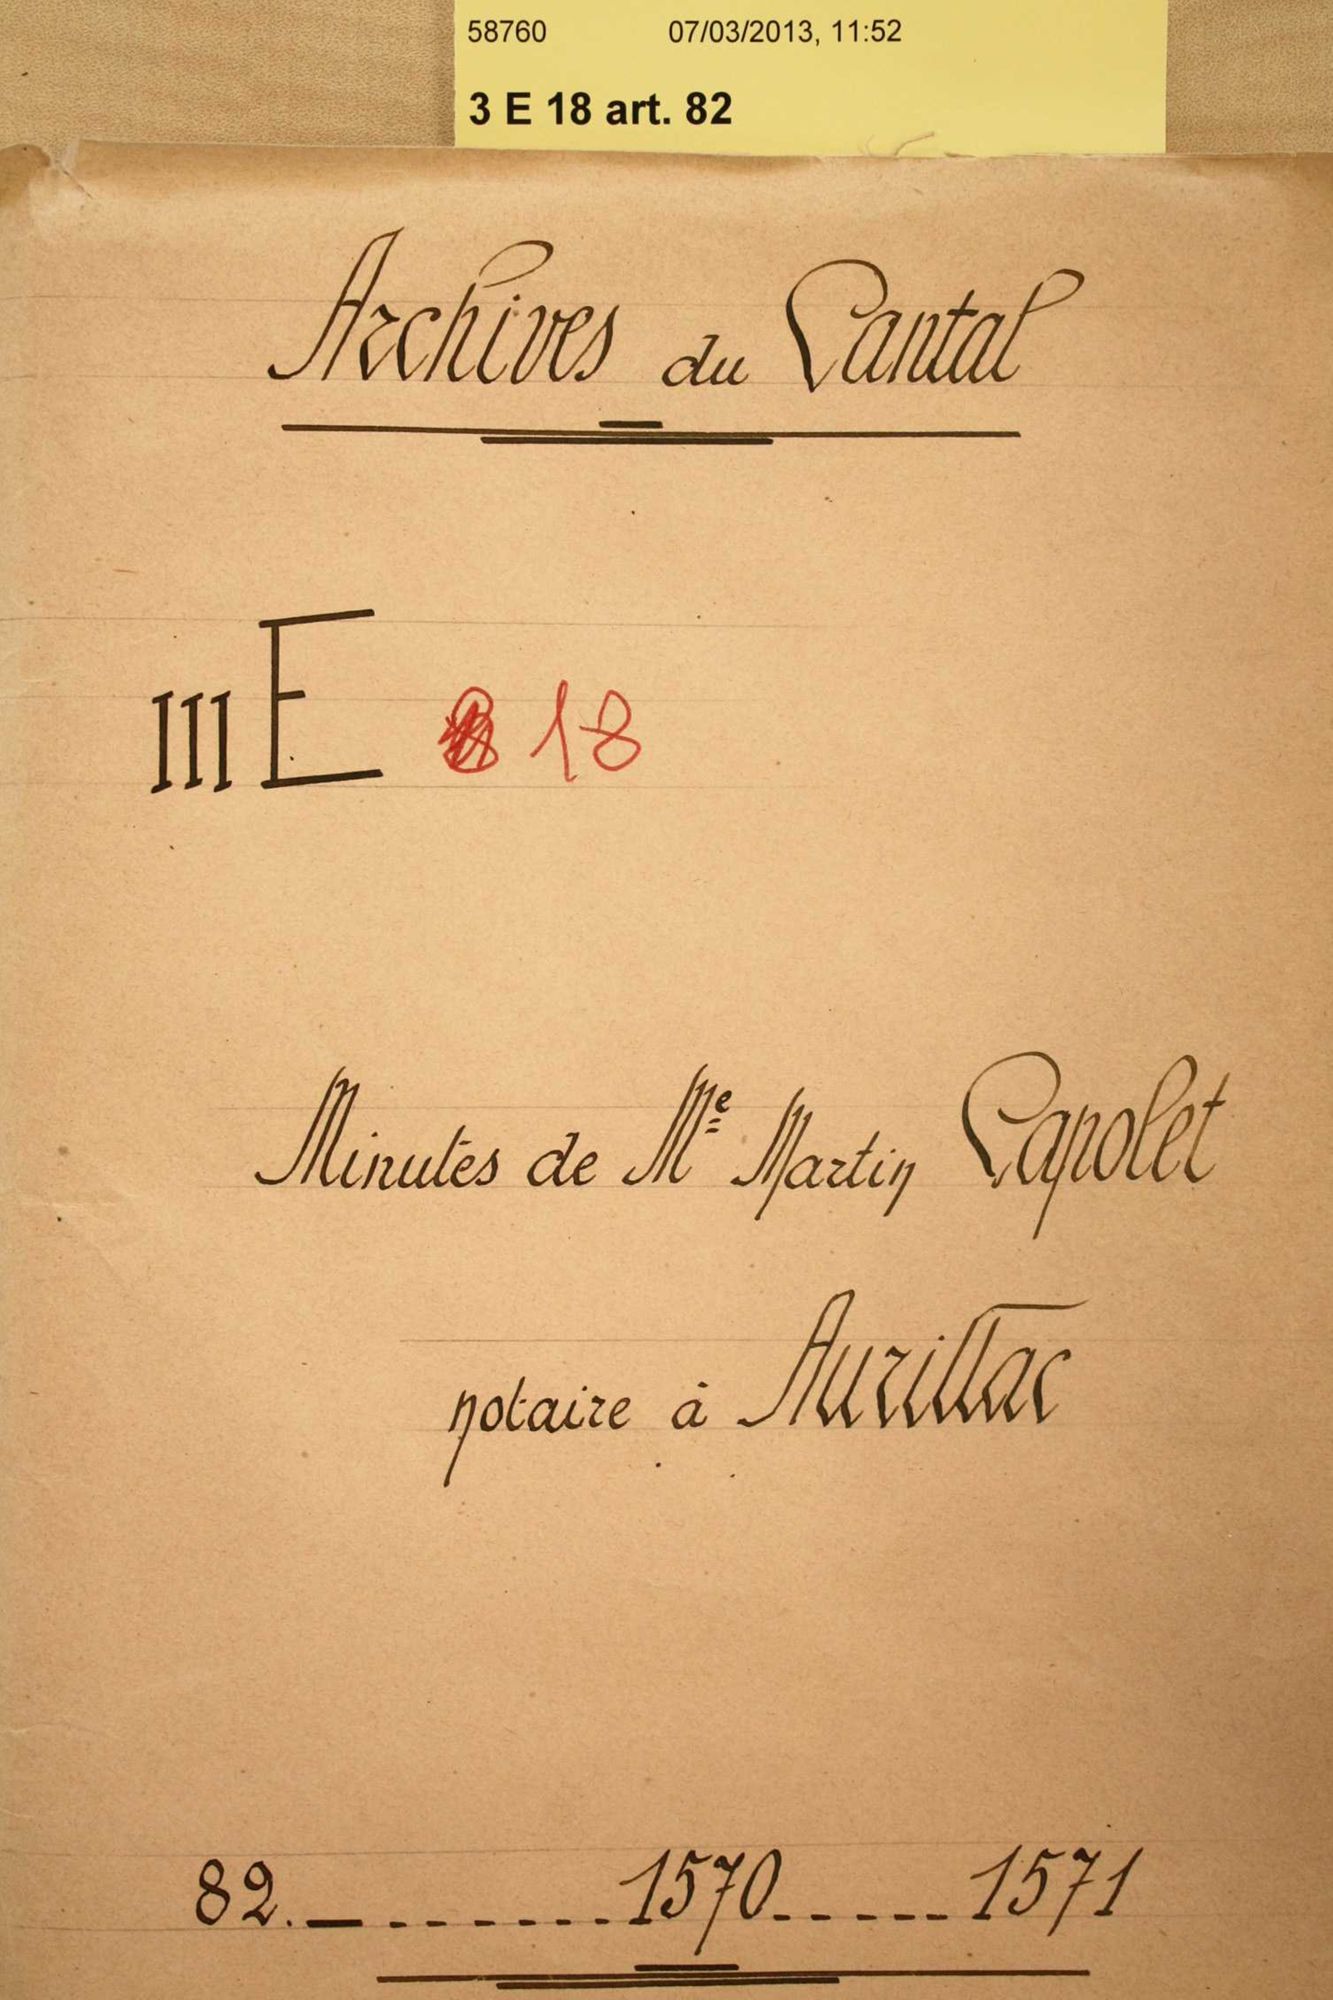 58760 07/03/2013, 11:52
3 E 18 art. 82
Archives du Cantal
III E 18
Minutes de Me Martin Capolet
notaire à Aurillac
82. _ _ _ _ _ _ _ 1570 _ _ _ _ _ 1571